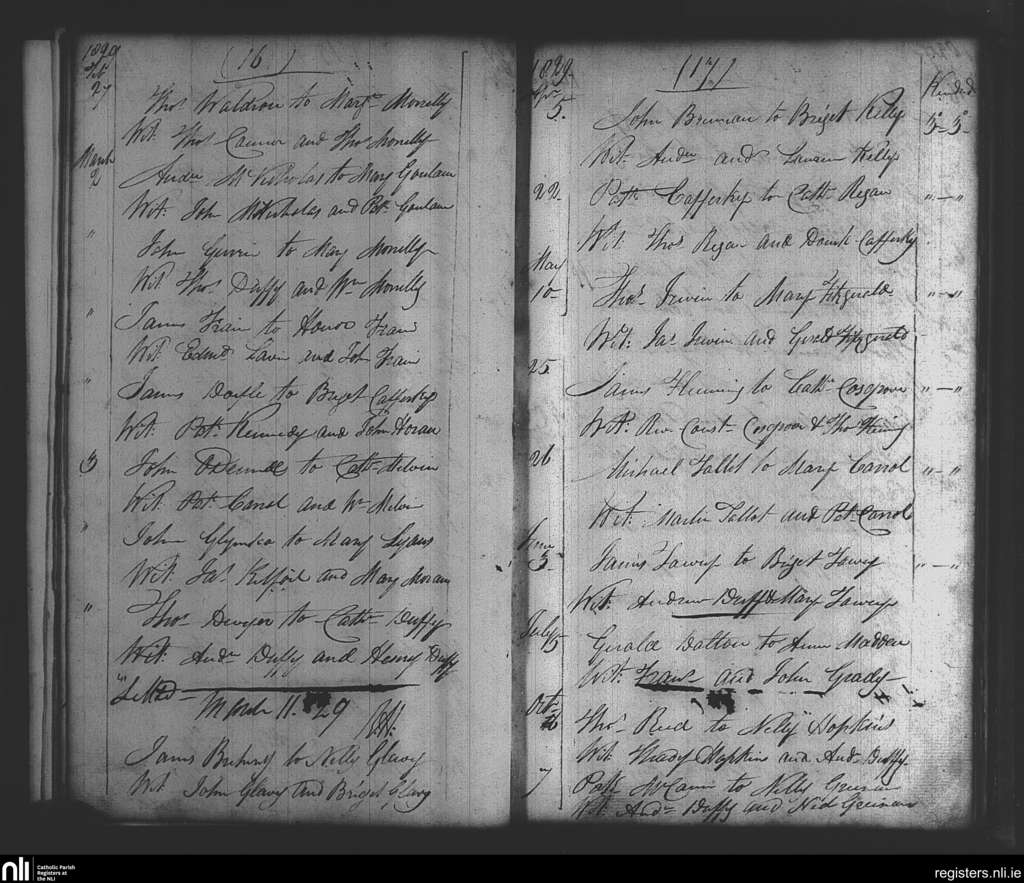 1829
(16)
Feb
27
Thos Waldron to Margt Morrelly
Wit. Thos Connor and Thos Morrelly
March
2
Andw McNicholas to Mary Goulann
Wit. John McNicholas and Pat. Goulann
" John to Mary Morrelly
Wit Thos Duffy and Wm Morrelly
" James Frain to Honor Frain
Wit. Edmd Lavin and Frain
" James Doyle to Briget Cafferky
Wit. Patk Kennedy and John Horan
3 John O'Donnell to Cath Melvin
Wit. Patk Carrol and Wm Melvin
" John to Mary Lyons
Wit. Jas Kilfoil and Mary Moran
" Thos Dwyer to Cath Duffy
Wit. Andw Duffy and Henry Duffy
March 11. 29
James to Nelly Glavy
Wit John Glavy and Briget Glavy
1829.
(17)
Apr.
5. John Brennan to Briget Kelly 5-5-
Wit. Andw and Kelly
22. Patk Cafferky to Cath Regan "-"
Wit. Thos Regan and Domk Cafferky
May
10- Thos Irwin to Mary Fitzgerald "-"
Wit. Jas Irwin and Gerald Fitzgerald
25
James Fleming to Cath Cosgrove "-"
Wit. Rev. Const- Cosgrove & Thos
26 Michael Tallot to Mary Carrol "-"
Wit. Martin Tallot and Pat. Carrol
June
3- James Towey to Briget Towey "-"
Wit. Andrew Duff & Mary Towey
July
5 Gerald Dalton to Anne Madden
Wit. and John Grady
Oct-
Thos Reid to Nelly Hopkins
Wit Hopkins and Andw Duffy
7 Patk McCann to Nelly
Wit. Andw Duffy and
nli
Catholic Parish
Registers at
the NLI
registers.nli.ie